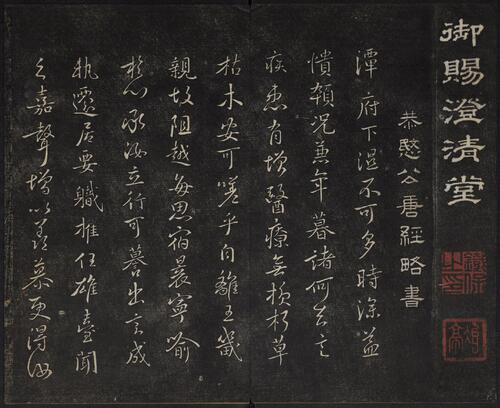 御賜澄清堂
恭愍公唐經略書
潭府下濕不可多時深益
憒頓況兼年暮諸何
疾患有增醫療無損朽草
枯木安可嗟乎自離王畿
親故阻越每思宿晨寧喻
愁心承汝立行可出言成
軌遷居要職推任雄臺聞
之嘉聲增以羨慕更得汝